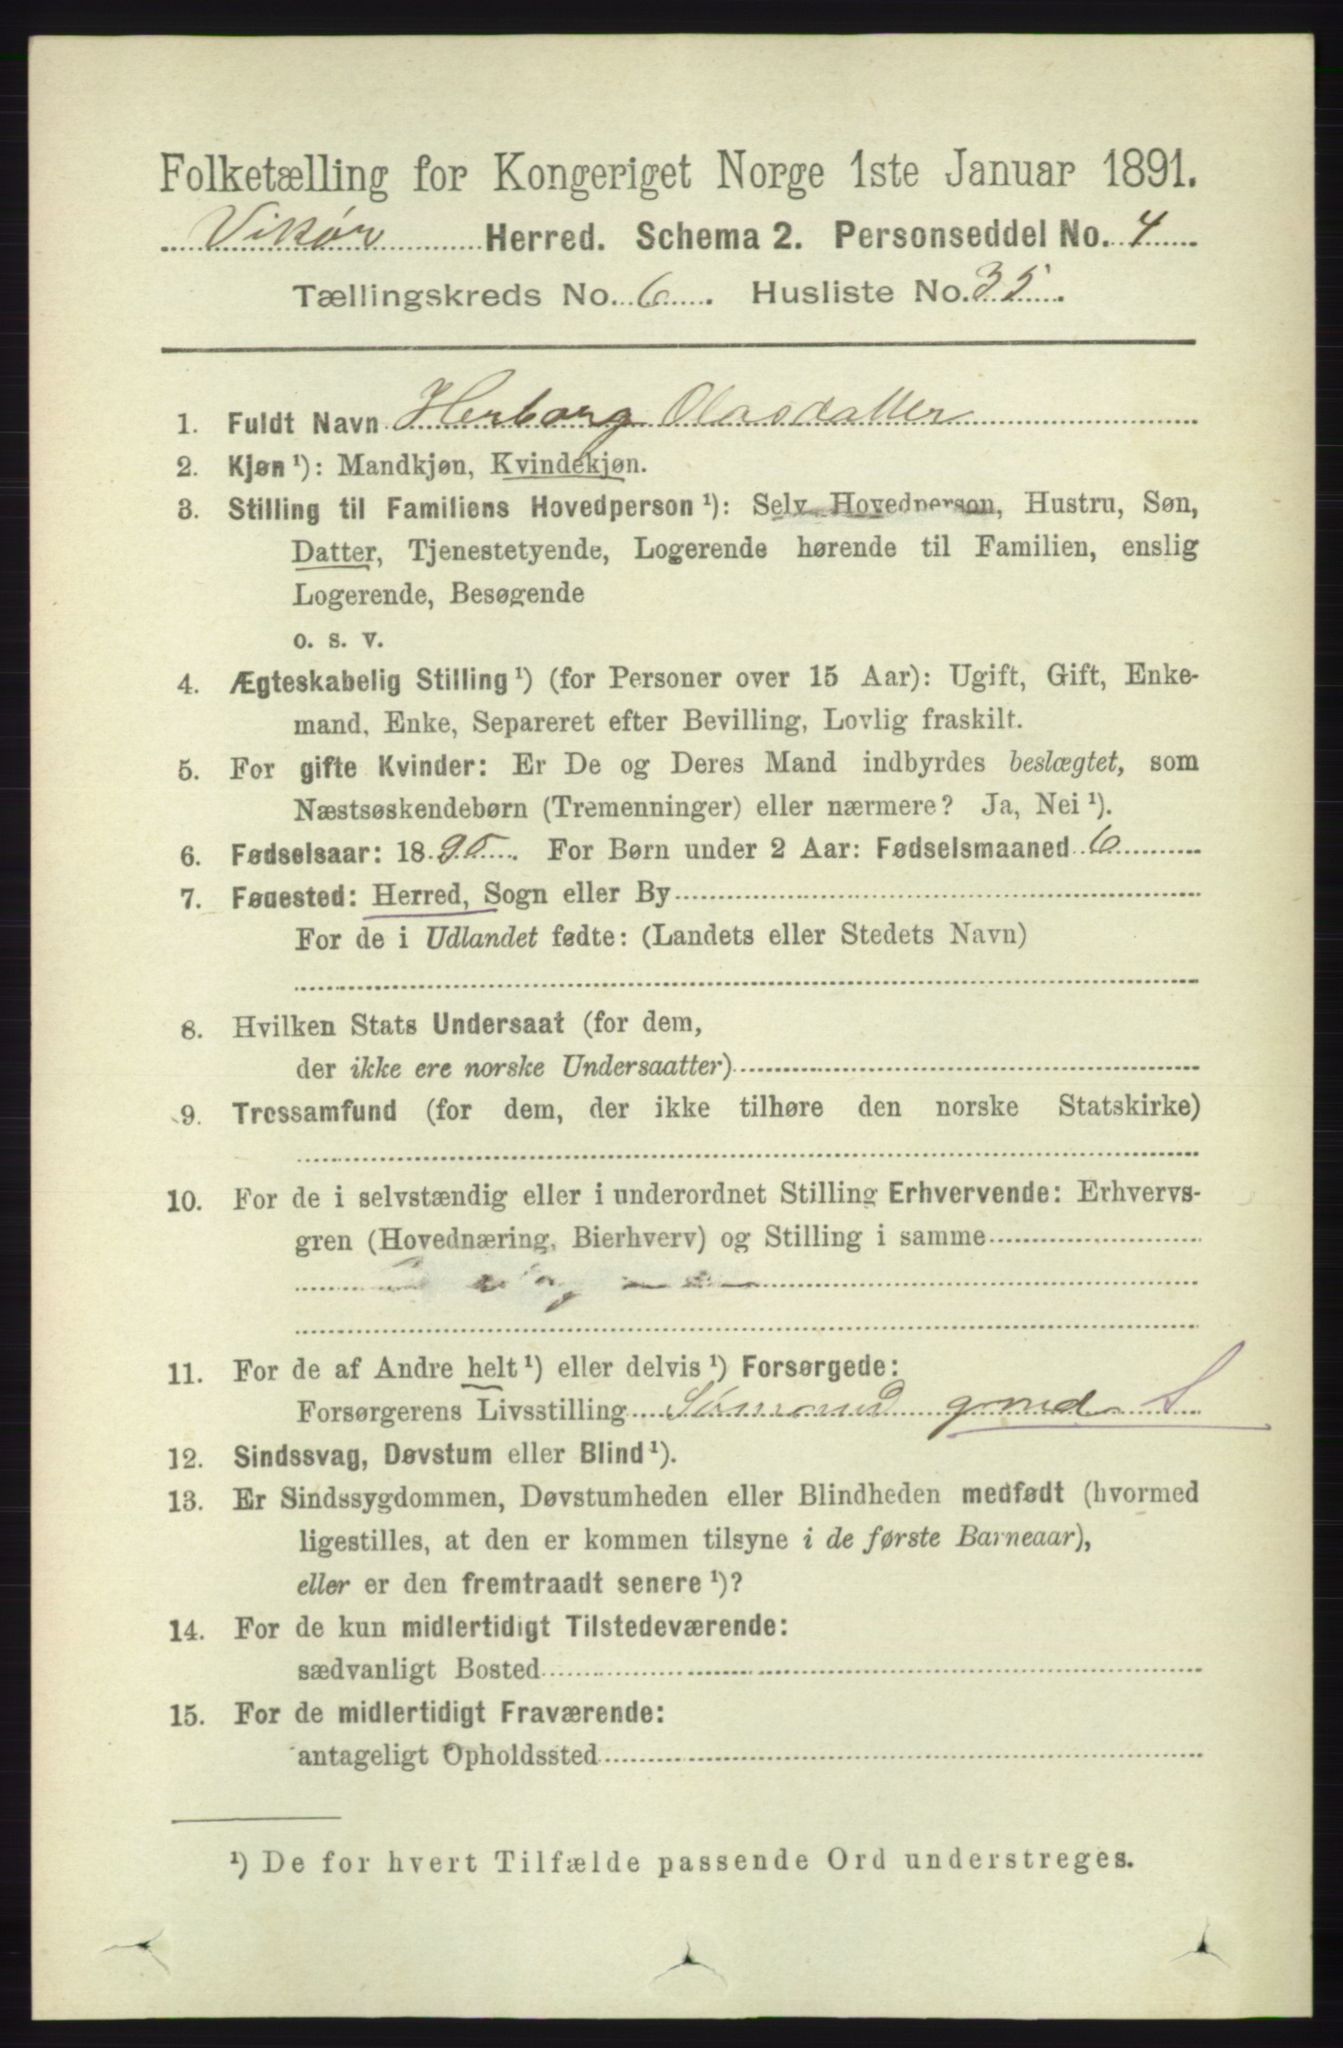 Folketælling for Kongeriget Norge 1ste Januar 1891.
Vikør Herred. Schema 2. Personseddel No. 4
Tællingskreds No. 6. Husliste No. 35.
1. Fuldt Navn Herborg Olasdatter
2. Kjøn¹): Mandkjøn, Kvindekjøn.
3. Stilling til Familiens Hovedperson¹): Selv Hovedperson, Hustru, Søn,
Datter, Tjenestetyende, Logerende hørende til Familien, enslig
Logerende, Besøgende
o. s. v.
4. Ægteskabelig Stilling¹) (for Personer over 15 Aar): Ugift, Gift, Enke-
mand, Enke, Separeret efter Bevilling, Lovlig fraskilt.
5. For gifte Kvinder: Er De og Deres Mand indbyrdes beslægtet, som
Næstsøskendebørn (Tremenninger) eller nærmere? Ja, Nei¹).
6. Fødselsaar: 1890. For Børn under 2 Aar: Fødselsmaaned 6
7. Fødested: Herred, Sogn eller By
For de i Udlandet fødte: (Landets eller Stedets Navn)
8. Hvilken Stats Undersaat (for dem,
der ikke ere norske Undersaatter)
9. Trossamfund (for dem, der ikke tilhøre den norske Statskirke)
10. For de i selvstændig eller i underordnet Stilling Erhvervende: Erhvervs-
gren (Hovednæring, Bierhverv) og Stilling i samme
11. For de af Andre helt¹) eller delvis¹) Forsørgede:
Forsørgerens Livsstilling S
12. Sindssvag, Døvstum eller Blind¹).
13. Er Sindssygdommen, Døvstumheden eller Blindheden medfødt (hvormed
ligestilles, at den er kommen tilsyne i de første Barneaar),
eller er den fremtraadt senere¹)?
14. For de kun midlertidigt Tilstedeværende:
sædvanligt Bosted
15. For de midlertidigt Fraværende:
antageligt Opholdssted
¹) De for hvert Tilfælde passende Ord understreges.